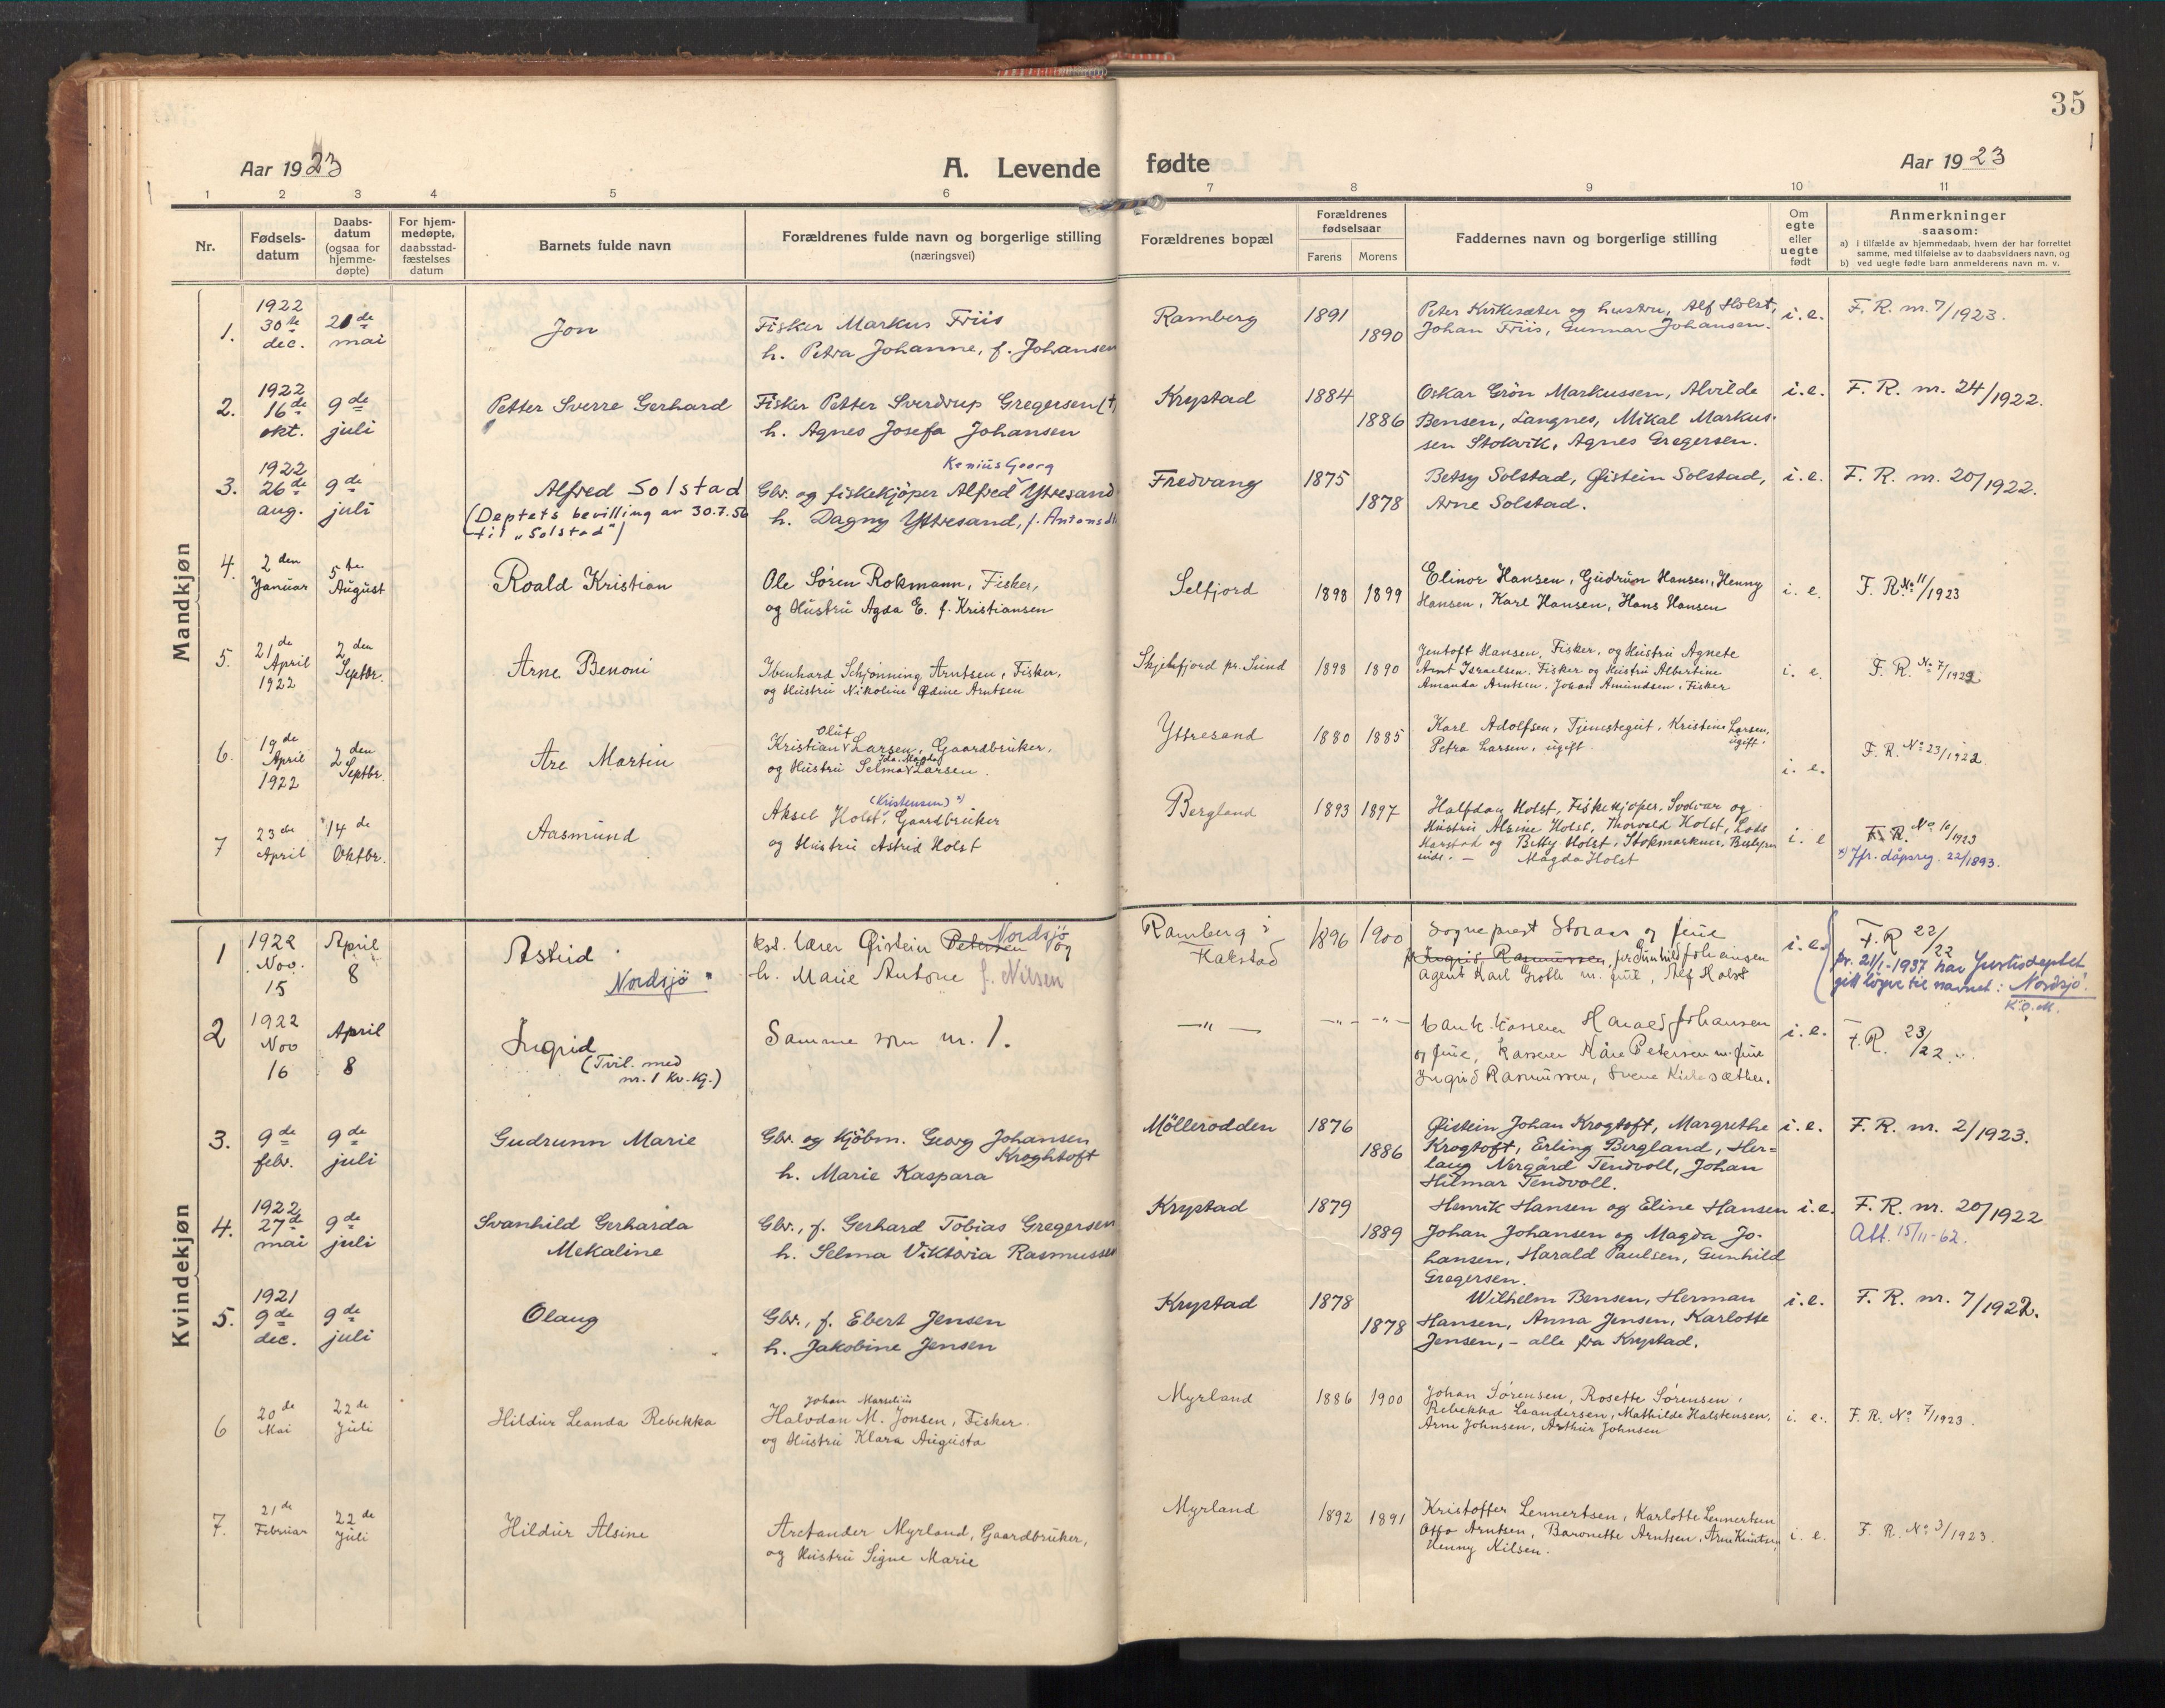 35
Aar 1923
A. Levende fødte
Aar 1923
1 2 3 4 5 6 7 8 9 10 11
Nr.
Fødsels-
datum
Daabs-
datum
(ogsaa for
hjemme-
døpte)
For hjem-
medøpte,
daabsstad-
fæstelses
datum
Barnets fulde navn
Forældrenes fulde navn og borgerlige stilling
(næringsvei)
Forældrenes bopæl
Forældrenes
fødselsaar
Farens Morens
Faddernes navn og borgerlige stilling
Om
egte
eller
uegte
født
Anmerkninger
saasom:
a) i tilfælde av hjemmedaab, hvem der har forrettet
samme, med tilføielse av to daabsvidners navn, og
b) ved uegte fødte barn anmelderens navn m. v.
Mandkjøn
1.
1922
30te
dec.
21de
mai
Jon
Fisker Markus Friis
h. Petra Johanne, f. Johansen
Ramberg
1891
1890
Peter Kirkesæter og hustru, Alf Holst,
Johan Friis, Gunnar Johansen.
i. e.
F. R. nr. 7/1923.
2.
1922
16de
okt.
9de
juli
Petter Sverre Gerhard
Fisker Petter Sverdrup Gregersen (†)
h. Agnes Josefa Johansen
Krystad
1884
1886
Oskar Grön Markussen, Alvilde
Bensen, Langnes, Mikal Markus-
sen Stokvik, Agnes Gregersen.
i. e.
F. R. nr. 24/1922.
3.
1922
26de
aug.
9de
juli
Alfred Solstad
(Deptets bevilling av 30.7.56
til „Solstad")
Kenius Georg
Gbr. og fiskekjöper Alfred Ytresand
h. Dagny Yttresand, f. Antonsdt
Fredvang
1875
1878
Betsy Solstad, Øistein Solstad,
Arne Solstad.
i. e.
F. R. nr. 20/1922.
4.
2den
Januar
5te
August
Roald Kristian
Ole Sören Rokmann, Fisker,
og Hustru Agda E. f. Kristiansen
Selfjord
1898 1899
Elinor Hansen, Gudrun Hansen, Henny
Hansen, Karl Hansen, Hans Hansen
i. e.
F. R. No 11/1923
5.
21de
April
1922
2den
Septbr.
Arne Benoni
Ibenhard Schjönning Arntsen, Fisker,
og Hustru Nikoline Odine Arntsen
Skjelfjord pr. Sund
1898 1890
Jentoft Hansen, Fisker, og Hustru Agnete
Arnt Israelsen, Fisker og Hustru Albertine
Amanda Arntsen, Johan Amundsen, Fisker
i. e.
F. R. No 7/1922
6.
19de
April
1922
2den
Septbr.
Are Martin
Oluf
Kristian Larsen, Gaardbruker,
Ida Magda
og Hustru Selma Larsen.
Yttresand
1880 1885
Karl Adolfsen, Tjenestegut, Kristine Larsen,
ugift.
Petra Larsen, ugift.
i. e.
F. R. No 23/1922.
7
23de
April
14de
Oktbr.
Aasmund
(Kristensen) x)
Aksel Holst, Gaardbruker
og Hustru Astrid Holst
Bergland
1893 1897
Halfdan Holst, Fiskekjøper, Svolvær og
Hustru Alsine Holst, Thorvald Holst, Lods
Harstad og Betty Holst, Stokmarknes,
Magda Holst
i. e
F. R. No 10/1923
x) Jfr. dåpsreg. 22/1893.
Kvindekjøn
1
1922
Nov.
15
April
8
Astrid
Nordsjö
kst. lærer Øistein Petersen Nordsjö og
h. Marie Antone f. Nilsen
Ramberg i
Flakstad
1896 1900
Sogneprest Storaas og frue
Ingrid Rasmussen, frk Gunhild Johansen
agent Karl Groth m. frue, Alf Holst
i. e.
F. R. 22/22
pr. 21/1-1937 har Justisdeptet
gitt löyve til navnet: Nordsjö.
K.O.M.
2
1922
Nov
16
April
8
Ingrid
(Tvil. med
nr. 1 kv. kj.)
Samme som nr. 1.
— " —
— " — — " —
bankkasserer Harald Johansen
og frue, kasserer Kåre Petersen m. frue
Ingrid Rasmussen, Svene Kirkesæther.
i. e.
F. R. 23/22
3.
9de
febr.
9de
juli
Gudrunn Marie
Gbr. og kjöbm. Georg Johansen
Kroghtoft
h. Marie Kaspara
Möllerodden
1876
1886
Øistein Johan Krogtoft, Margrethe
Krogtoft, Erling Bergland, Her-
laug Nergård Tendvoll, Johan
Hilmar Tendvoll.
i. e.
F. R. nr. 2/1923.
4.
1922
27de
mai
9de
juli
Svanhild Gerharda
Mekaline
Gbr., f. Gerhard Tobias Gregersen
h. Selma Viktoria Rasmussen
Krystad
1879
1889
Henrik Hansen og Eline Hansen
Johan Johansen og Magda Jo-
hansen, Harald Paulsen, Gunhild
Gregersen.
i. e.
F. R. nr. 20/1922
Att. 15/11-62.
5.
1921
9de
dec.
9de
juli
Olaug
Gbr., f. Ebert Jensen
h. Jakobine Jensen
Krystad
1878
1878
Wilhelm Bensen, Herman
Hansen, Anna Jensen, Karlotte
Jensen, – alle fra Krystad.
i. e.
F. R. nr. 7/1922.
6
20de
Mai
22de
Juli
Hildur Leanda Rebekka
Johan Marselius
Halvdan M. Jonsen, Fisker.
og Hustru Klara Augusta
Myrland
1886 1900
Johan Sørensen, Rosette Sørensen,
Rebekka Leandersen, Mathilde Halstensen,
Arne Johnsen, Arthur Johnsen
i. e.
F. R. No 7/1923.
7.
21de
Februar
22de
Juli
Hildur Alsine
Arctander Myrland, Gaardbruker,
og Hustru Signe Marie
Myrland
1892 1891
Kristoffer Lennertsen, Karlotte Lennertsen
Otto Arntsen, Baronette Arntsen, Arne Knutsen
Henny Nilsen.
i. e.
F. R. No 3/1923.